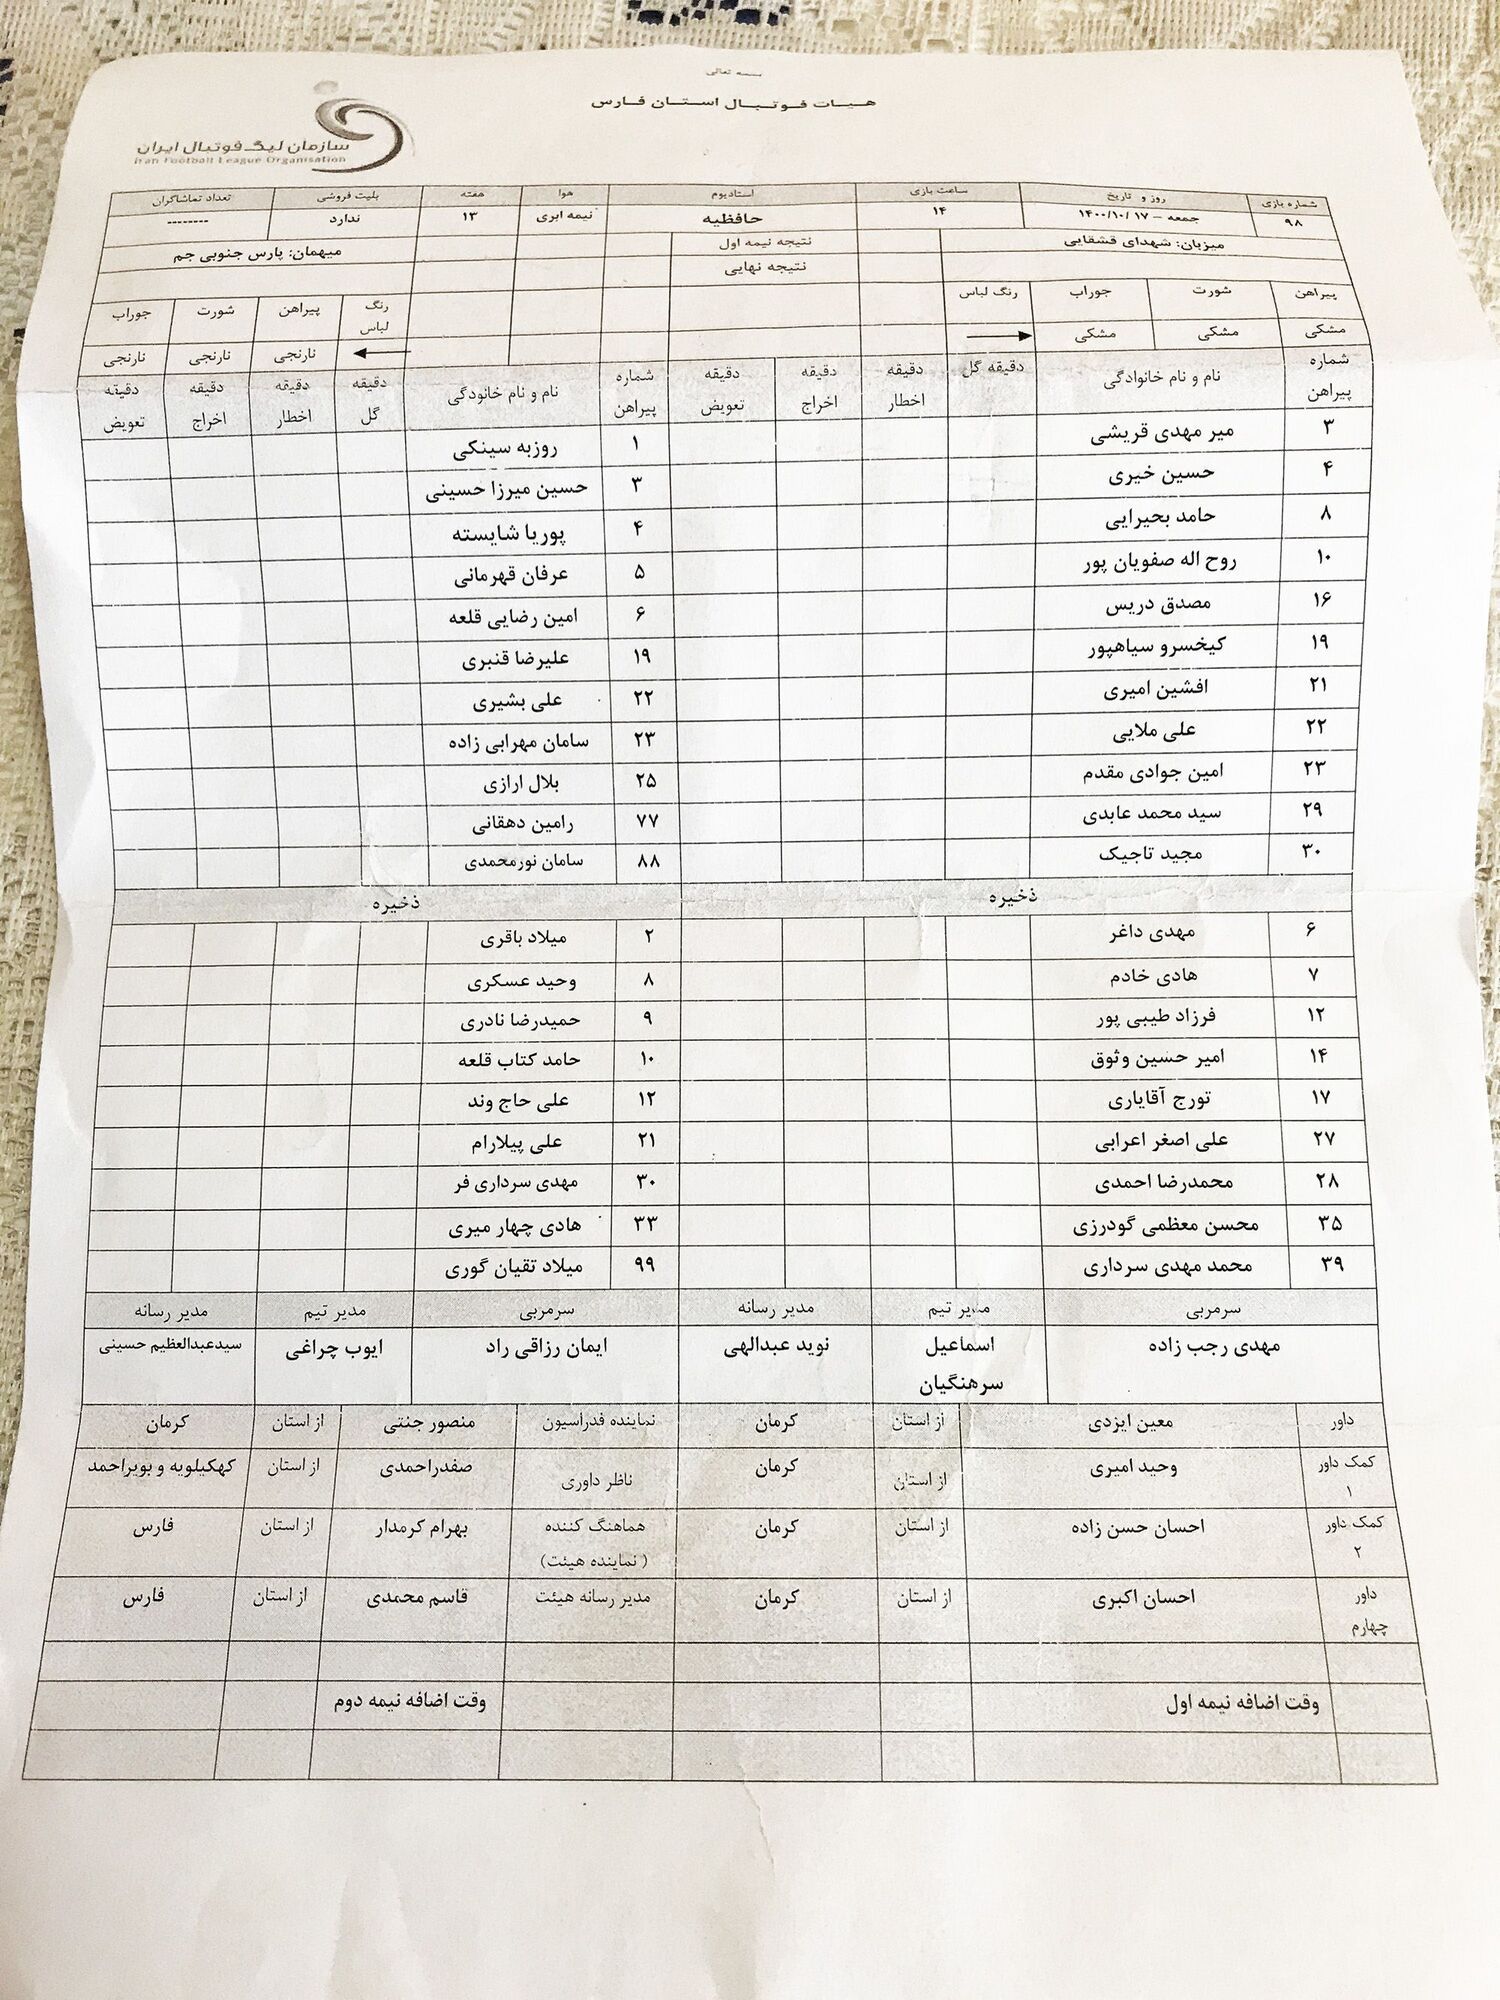 بسمه تعالی
هیـات فـوتـبـال اسـتـان فـارس
سازمان لیگ فوتبال ایران
Iran Football League Organisation
شماره بازی روز و تاریخ ساعت بازی استادیوم هوا هفته بلیت فروشی تعداد تماشاگران
۹۸ جمعه – ۱۴۰۰/۱۰/۱۷ ۱۴ حافظیه نیمه ابری ۱۳ ندارد --------
میزبان: شهدای قشقایی نتیجه نیمه اول میهمان: پارس جنوبی جم
نتیجه نهایی
پیراهن شورت جوراب رنگ لباس رنگ لباس پیراهن شورت جوراب
مشکی مشکی مشکی نارنجی نارنجی نارنجی
شماره پیراهن نام و نام خانوادگی دقیقه گل دقیقه اخطار دقیقه اخراج دقیقه تعویض شماره پیراهن نام و نام خانودگی دقیقه گل دقیقه اخطار دقیقه اخراج دقیقه تعویض
۳ میر مهدی قریشی ۱ روزبه سینکی
۴ حسین خیری ۳ حسین میرزا حسینی
۸ حامد بحیرایی ۴ پوریا شایسته
۱۰ روح اله صفویان پور ۵ عرفان قهرمانی
۱۶ مصدق دریس ۶ امین رضایی قلعه
۱۹ کیخسرو سیاهپور ۱۹ علیرضا قنبری
۲۱ افشین امیری ۲۲ علی بشیری
۲۲ علی ملایی ۲۳ سامان مهرابی زاده
۲۳ امین جوادی مقدم ۲۵ بلال ارازی
۲۹ سید محمد عابدی ۷۷ رامین دهقانی
۳۰ مجید تاجیک ۸۸ سامان نورمحمدی
ذخیره ذخیره
۶ مهدی داغر ۲ میلاد باقری
۷ هادی خادم ۸ وحید عسکری
۱۲ فرزاد طیبی پور ۹ حمیدرضا نادری
۱۴ امیر حسین وثوق ۱۰ حامد کتاب قلعه
۱۷ تورج آقایاری ۱۲ علی حاج وند
۲۷ علی اصغر اعرابی ۲۱ علی پیلارام
۲۸ محمدرضا احمدی ۳۰ مهدی سرداری فر
۳۵ محسن معظمی گودرزی ۳۳ هادی چهار میری
۳۹ محمد مهدی سرداری ۹۹ میلاد تقیان گوری
سرمربی مدیر تیم مدیر رسانه سرمربی مدیر تیم مدیر رسانه
مهدی رجب زاده اسماعیل سرهنگیان نوید عبدالهی ایمان رزاقی راد ایوب چراغی سیدعبدالعظیم حسینی
داور معین ایزدی از استان کرمان نماینده فدراسیون منصور جنتی از استان کرمان
کمک داور ۱ وحید امیری از استان کرمان ناظر داوری صفدراحمدی از استان کهکیلویه و بویراحمد
کمک داور ۲ احسان حسن زاده از استان کرمان هماهنگ کننده (نماینده هیئت) بهرام کرمدار از استان فارس
داور چهارم احسان اکبری از استان کرمان مدیر رسانه هیئت قاسم محمدی از استان فارس
وقت اضافه نیمه اول وقت اضافه نیمه دوم